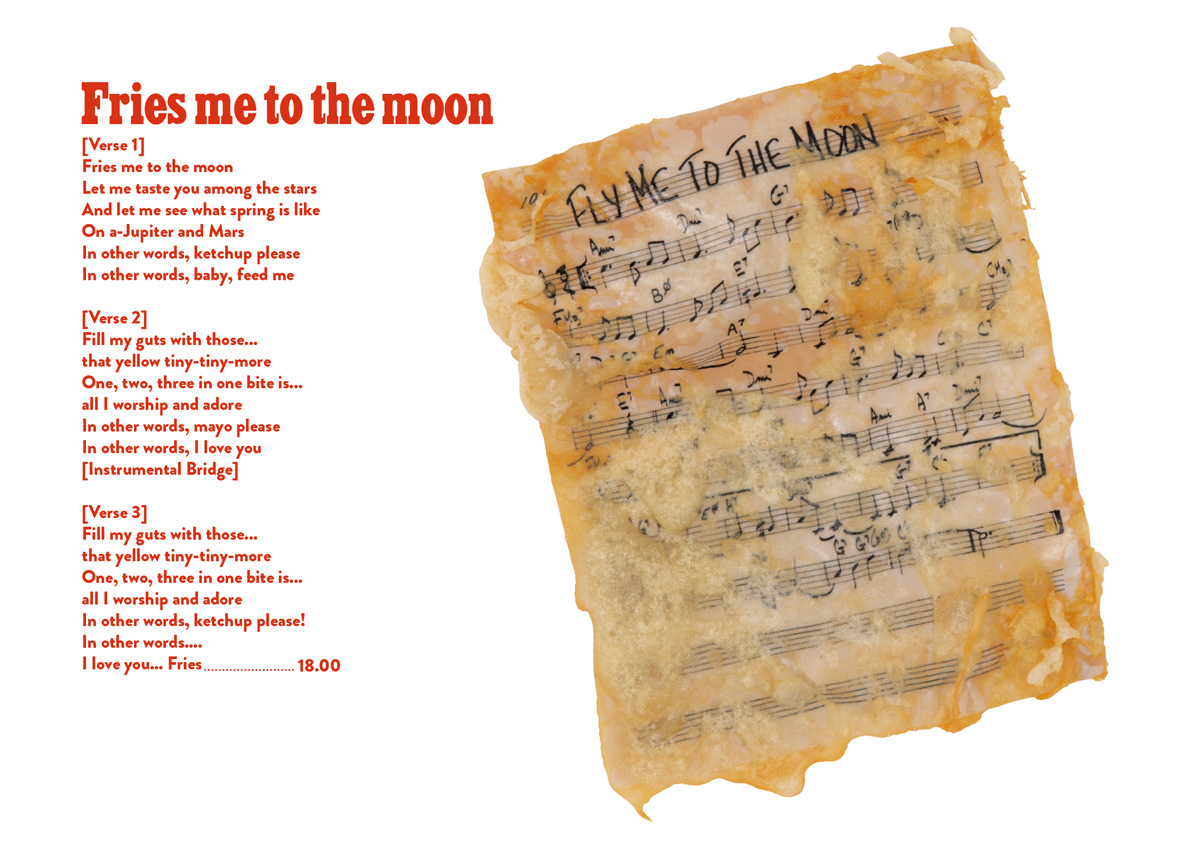 Fries me to the moon
[Verse 1]
Fries me to the moon
Let me taste you among the stars
And let me see what spring is like
On a-Jupiter and Mars
In other words, ketchup please
In other words, baby, feed me
[Verse 2]
Fill my guts with those...
that yellow tiny-tiny-more
One, two, three in one bite is...
all I worship and adore
In other words, mayo please
In other words, I love you
[Instrumental Bridge]
[Verse 3]
Fill my guts with those...
that yellow tiny-tiny-more
One, two, three in one bite is...
all I worship and adore
In other words, ketchup please!
In other words....
I love you... Fries......................... 18.00
FLY ME TO THE MOON
Ami7 Dmi7 G7
BØ E7
Em A7 Dmi7
E7 Ami7 Dmi7 G7 C7
Ami A7 Dmi7
G7